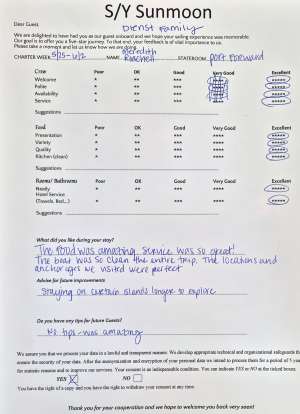 S/Y Sunmoon
Dear Guest, Dienst Family
We are delighted to have had you as our guest onboard and we hope your sailing experience was memorable.
Our goal is to offer you a five-star journey. To that end, your feedback is of vital importance to us.
Please take a moment and let us know how we are doing.
CHARTER WEEK 5/25-6/2 NAME Meredith STATEROOM port forward
Crew Poor OK Good Very Good Excellent
Welcome * ** *** **** *****
Polite * ** *** **** *****
Availability * ** *** **** *****
Service * ** *** **** *****
Suggestions
Food Poor OK Good Very Good Excellent
Presentation * ** *** **** *****
Variety * ** *** **** *****
Quality * ** *** **** *****
Kitchen (clean) * ** *** **** *****
Suggestions
Rooms/ Bathrooms Poor OK Good Very Good Excellent
Ready * ** *** **** *****
Hotel Service
(Towels, Bed...) * ** *** **** *****
Suggestions
What did you like during your stay?
The food was amazing. Service was so great!
The boat was so clean the entire trip. The locations and
anchorages we visited were perfect
Advise for future improvements
Staying on certain islands longer to explore
Do you have any tips for future Guests?
No tips - was amazing
We assure you that we process your data in a lawful and transparent manner. We develop appropriate technical and organizational safeguards th
ensure the security of your data. After the anonymization and encryption of your personal data we intend to process them for a period of 5 year
for statistic reasons and to improve our services. Your consent is an indispensable condition. You can indicate YES or NO in the ticked boxes.
YES X NO
You have the right of a copy and you have the right to withdraw your consent at any time.
Thank you for your cooperation and we hope to welcome you back very soon!